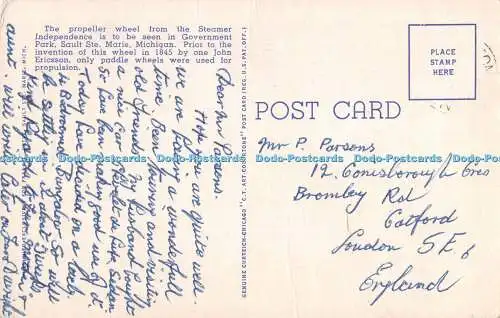 The propeller wheel from the Steamer
Independence is to be seen in Government
Park, Sault Ste. Marie, Michigan. Prior to the
invention of this wheel in 1845 by one John
Ericsson, only paddle wheels were used for
propulsion.
Dear Mr Parsons.
Hope you are quite well.
we are having a wonderfull
time. Been busy and visiting
old friends. My husband bought
a nice car
So have been making good use of it.
Today have
to Edmond Bungalow So will
be settling in
Kind Regards to
aunt. will write later on
GENUINE CURTEICH-CHICAGO "C.T. ART-COLORTONE" POST CARD (REG. U.S. PAT. OFF.)
POST CARD
PLACE
STAMP
HERE
Mr P. Parsons
12, Conisborough Cres
Bromley Rd
Catford
London S E 6
England
Dodo-Postcards Dodo-Postcards Dodo-Postcards Dodo-Postcards Dodo-Postcards